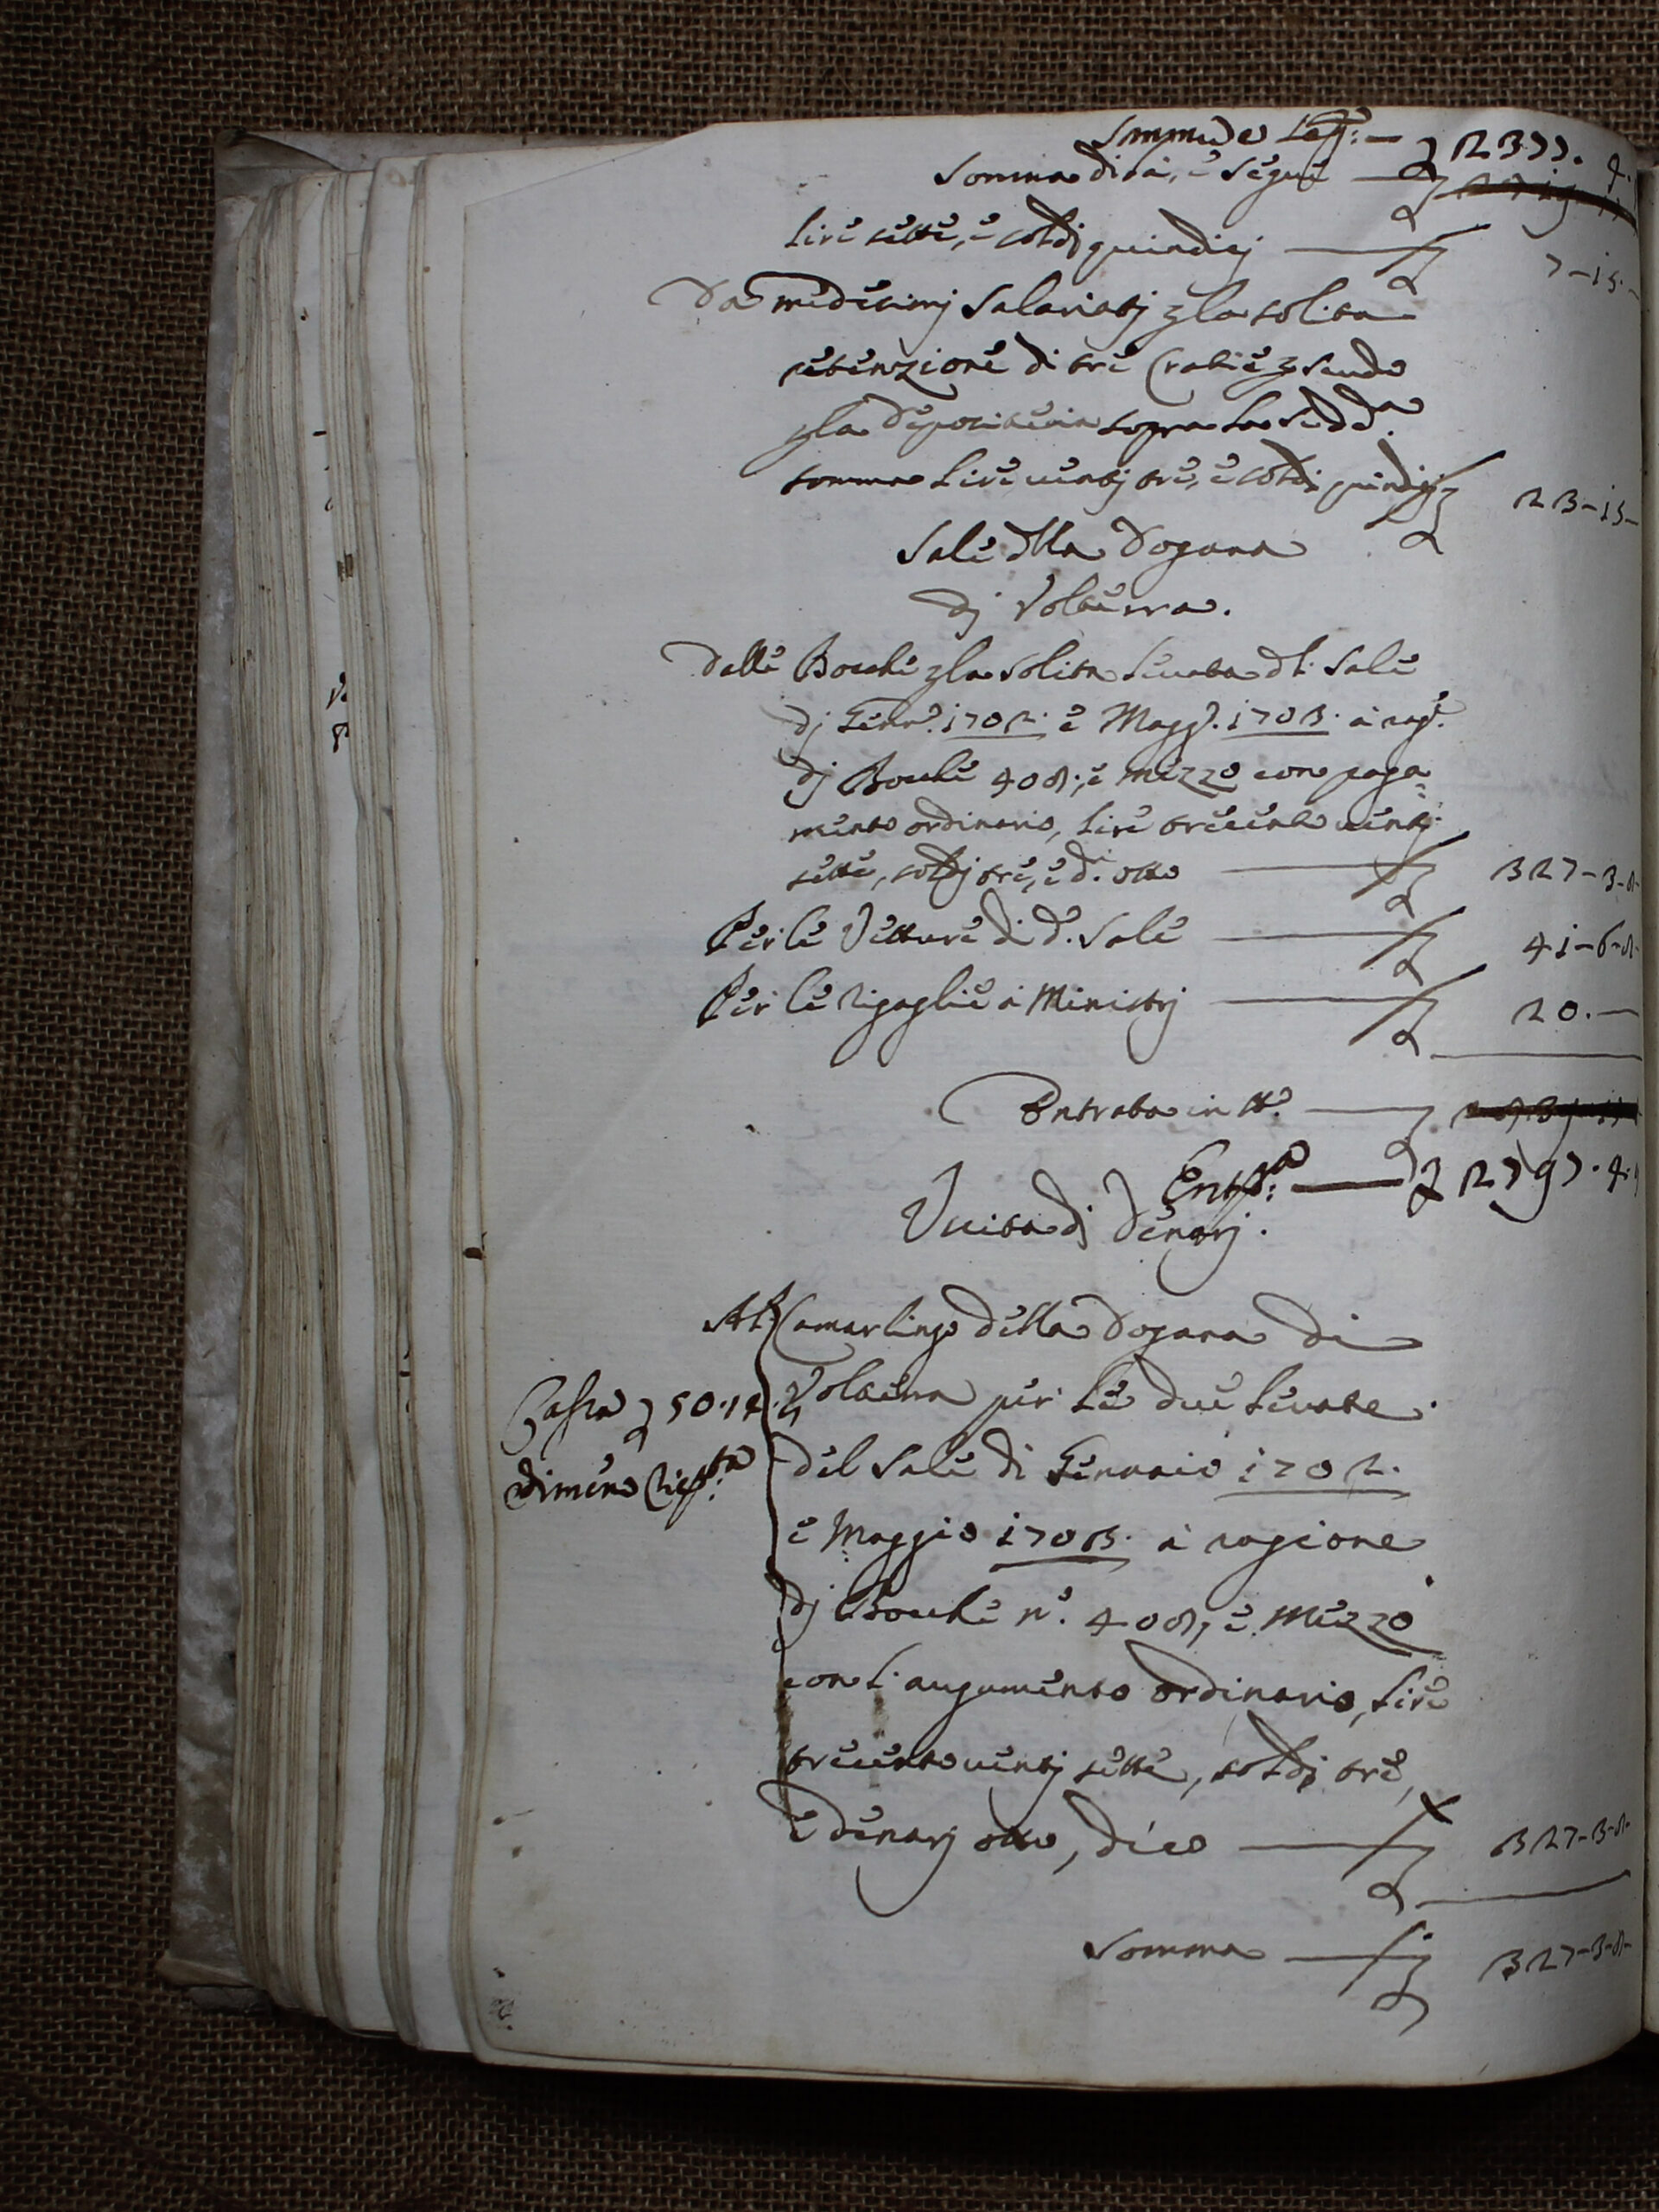 Somma e seg: — 2377. 4.
Somma di là, e segue —
lire sette, e soldj quindicj — 7-15-
Da medesimj Salariatj p la solita
retenzione di tre Crazie p scudo
p la depositeria sopra la sudd.a
somma lire ventj tre, e soldi quindicj 23-15-
Sale dlla Dogana
dj Volterra.
Delle Bocche p la solita levata dl Sale
dj Genn.o 1702. e Magg.o 1703. à rag.e
dj Bocche 408; e mezzo con paga=
mento ordinario, lire trecento ventj
sette, soldj tre, e d.i otto — 327-3-8-
Per le Vetture di d.o Sale — 41-6-8-
Per le rigaglie à Ministrj — 20.—
Entrata in tt.o —
Ent.a: — 2797. 4.
Uscita dj Denarj.
Al Camarlingo della Dogana di
Volterra per le due levate
del Sale di Gennaio 1702.
e Maggio 1703. à ragione
dj Bocche n.o 408, e mezzo
con l'augumento ordinario, lire
trecento ventj sette, soldj tre,
e denarj otto, dico — 327-3-8-
Somma — 327-3-8-
50.14.
di meno